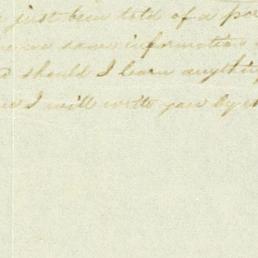 just been told of a
some information
should I learn anything
I will write you by